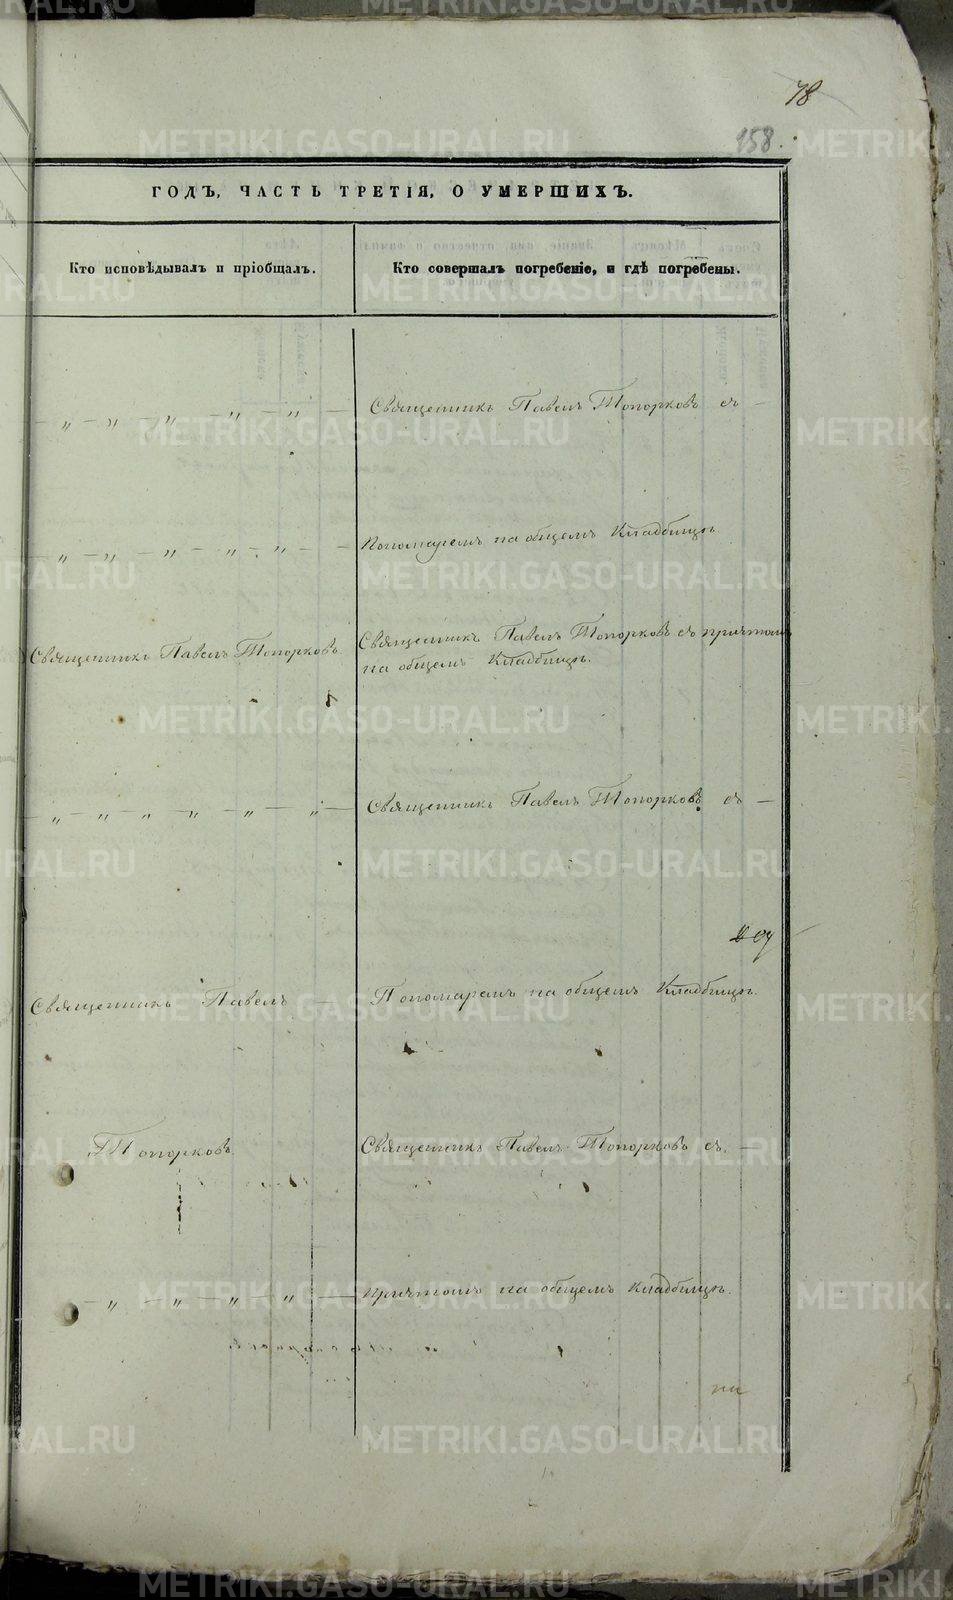 78
158.
ГОДЪ, ЧАСТЬ ТРЕТІЯ, О УМЕРШИХЪ.
Кто исповѣдывалъ и пріобщалъ.
Кто совершалъ погребеніе, и гдѣ погребены.
— „ — „ — „ — „ — „ — Священникъ Павелъ Топорковъ съ —
— „ — „ — „ — „ — „ — Пономаремъ на общемъ Кладбищѣ
Священникъ Павелъ Топорковъ.
Священникъ Павелъ Топорковъ съ причтомъ
на общемъ Кладбищѣ.
— „ — „ — „ — „ — „ — „ — Священникъ Павелъ Топорковъ съ —
Священникъ Павелъ — Пономаремъ на общемъ Кладбищѣ.
Топорковъ. Священникъ Павелъ Топорковъ съ. —
— „ — „ — „ — „ — причтомъ на общемъ Кладбищѣ.
METRIKI.GASO-URAL.RU